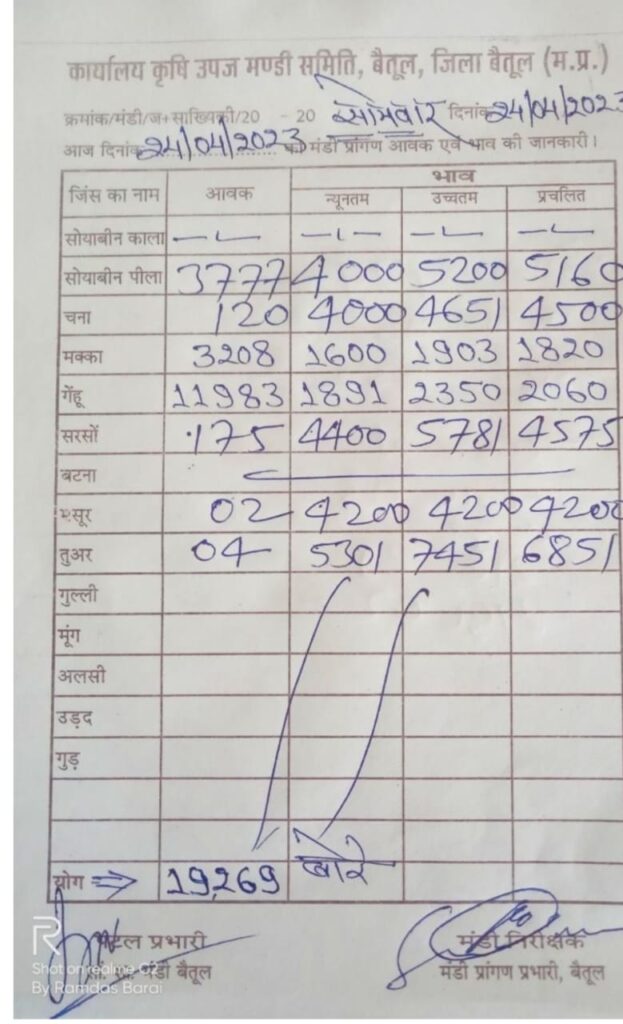 कार्यालय कृषि उपज मण्डी समिति, बैतूल, जिला बैतूल (म.प्र.)
क्रमांक/मंडी/ज+सांख्यिकी/20 - 20 सोमवार दिनांक 24/04/2023
आज दिनांक 24/04/2023 को मंडी प्रांगण आवक एवं भाव की जानकारी।
जिंस का नाम आवक भाव
न्यूनतम उच्चतम प्रचलित
सोयाबीन काला — — — —
सोयाबीन पीला 3777 4000 5200 5160
चना 120 4000 4651 4500
मक्का 3208 1600 1903 1820
गेंहू 11983 1891 2350 2060
सरसों 175 4400 5781 4575
बटना —
मसूर 02 4200 4200 4200
तुअर 04 5301 7451 6851
गुल्ली
मूंग
अलसी
उड़द
गुड़
योग ⇒ 19,269 बोरे
प्रभारी मंडी निरीक्षक
मंडी बैतूल मंडी प्रांगण प्रभारी, बैतूल
R
Shot on realme C2
By Ramdas Barai